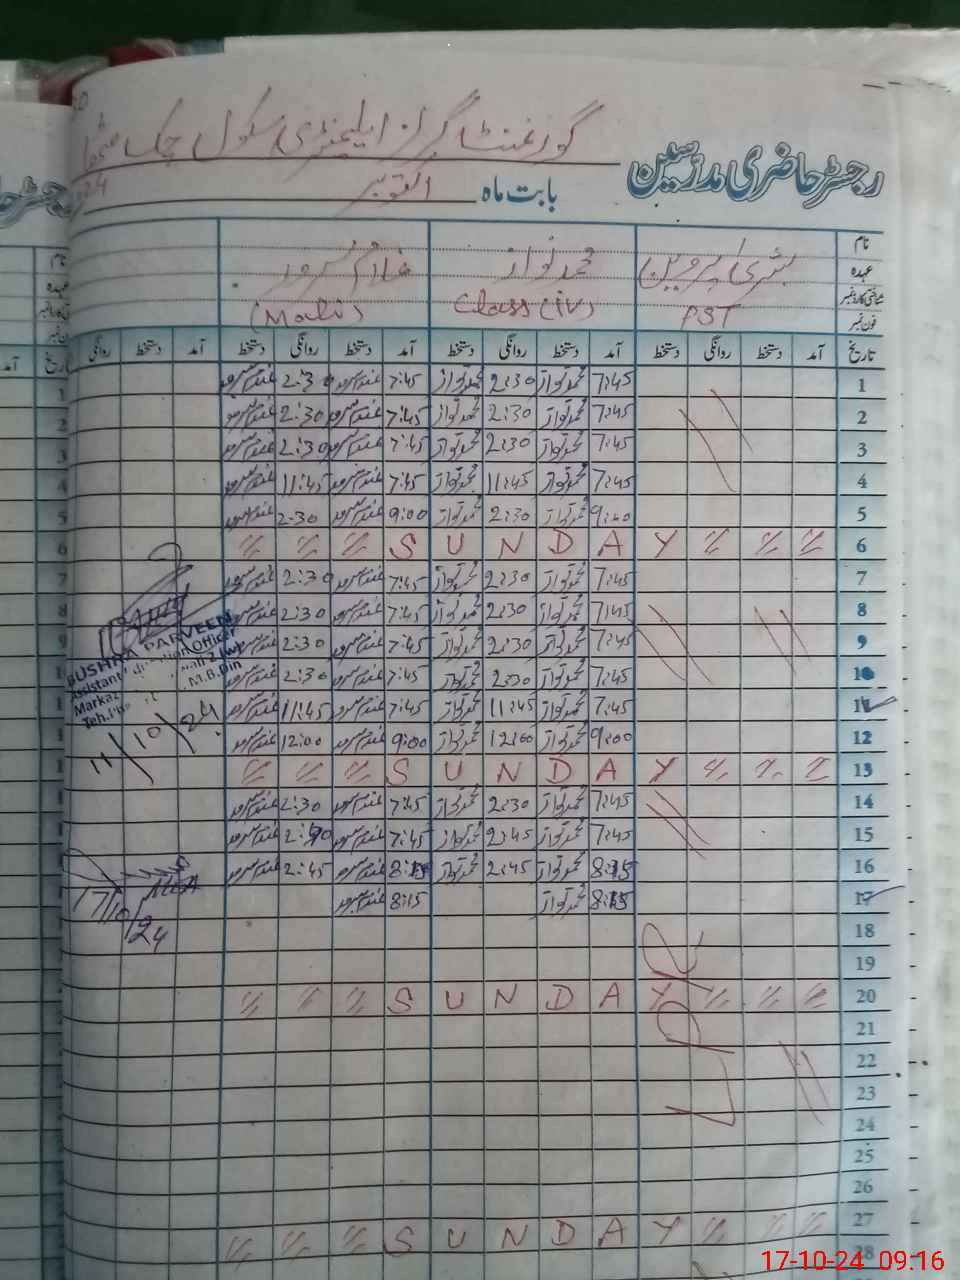 گورنمنٹ گرلز ایلیمنٹری سکول چک
رجسٹر حاضری مدرسین بابت ماہ اکتوبر 24
نام
عہدہ
شناختی کارڈ نمبر
فون نمبر
بشریٰ پروین محمد نواز غلام سرور
PST Class (iv) (Mali)
تاریخ آمد دستخط روانگی دستخط آمد دستخط روانگی دستخط آمد دستخط روانگی دستخط آمد دستخط روانگی
1 7:45 محمد نواز 2:30 محمد نواز 7:45 غلام سرور 2:30 غلام سرور
2 7:45 محمد نواز 2:30 محمد نواز 7:45 غلام سرور 2:30 غلام سرور
3 7:45 محمد نواز 2:30 محمد نواز 7:45 غلام سرور 2:30 غلام سرور
4 7:45 محمد نواز 11:45 محمد نواز 7:45 غلام سرور 11:45 غلام سرور
5 9:00 محمد نواز 2:30 محمد نواز 9:00 غلام سرور 2-30 غلام سرور
6 SUNDAY
7 7:45 محمد نواز 2:30 محمد نواز 7:45 غلام سرور 2:30 غلام سرور
8 7:45 محمد نواز 2:30 محمد نواز 7:45 غلام سرور 2:30 غلام سرور
9 7:45 محمد نواز 2:30 محمد نواز 7:45 غلام سرور 2:30 غلام سرور
10 7:45 محمد نواز 2:30 محمد نواز 7:45 غلام سرور 2:30 غلام سرور
11 7:45 محمد نواز 11:45 محمد نواز 7:45 غلام سرور 11:45 غلام سرور
12 9:00 محمد نواز 12:00 محمد نواز 9:00 غلام سرور 12:00 غلام سرور
13 SUNDAY
14 7:45 محمد نواز 2:30 محمد نواز 7:45 غلام سرور 2:30 غلام سرور
15 7:45 محمد نواز 2:45 محمد نواز 7:45 غلام سرور غلام سرور
16 8:15 محمد نواز 2:45 محمد نواز 8:15 غلام سرور 2:45 غلام سرور
17 8:15 محمد نواز 8:15 غلام سرور
18
19
20 SUNDAY
21
22
23
24
25
26
27 SUNDAY
28
LPR
BUSHRA PARVEEN
Assistant Education Officer
Markaz
Teh. M.B.Din
11/10/24
17/10/24
17-10-24 09:16